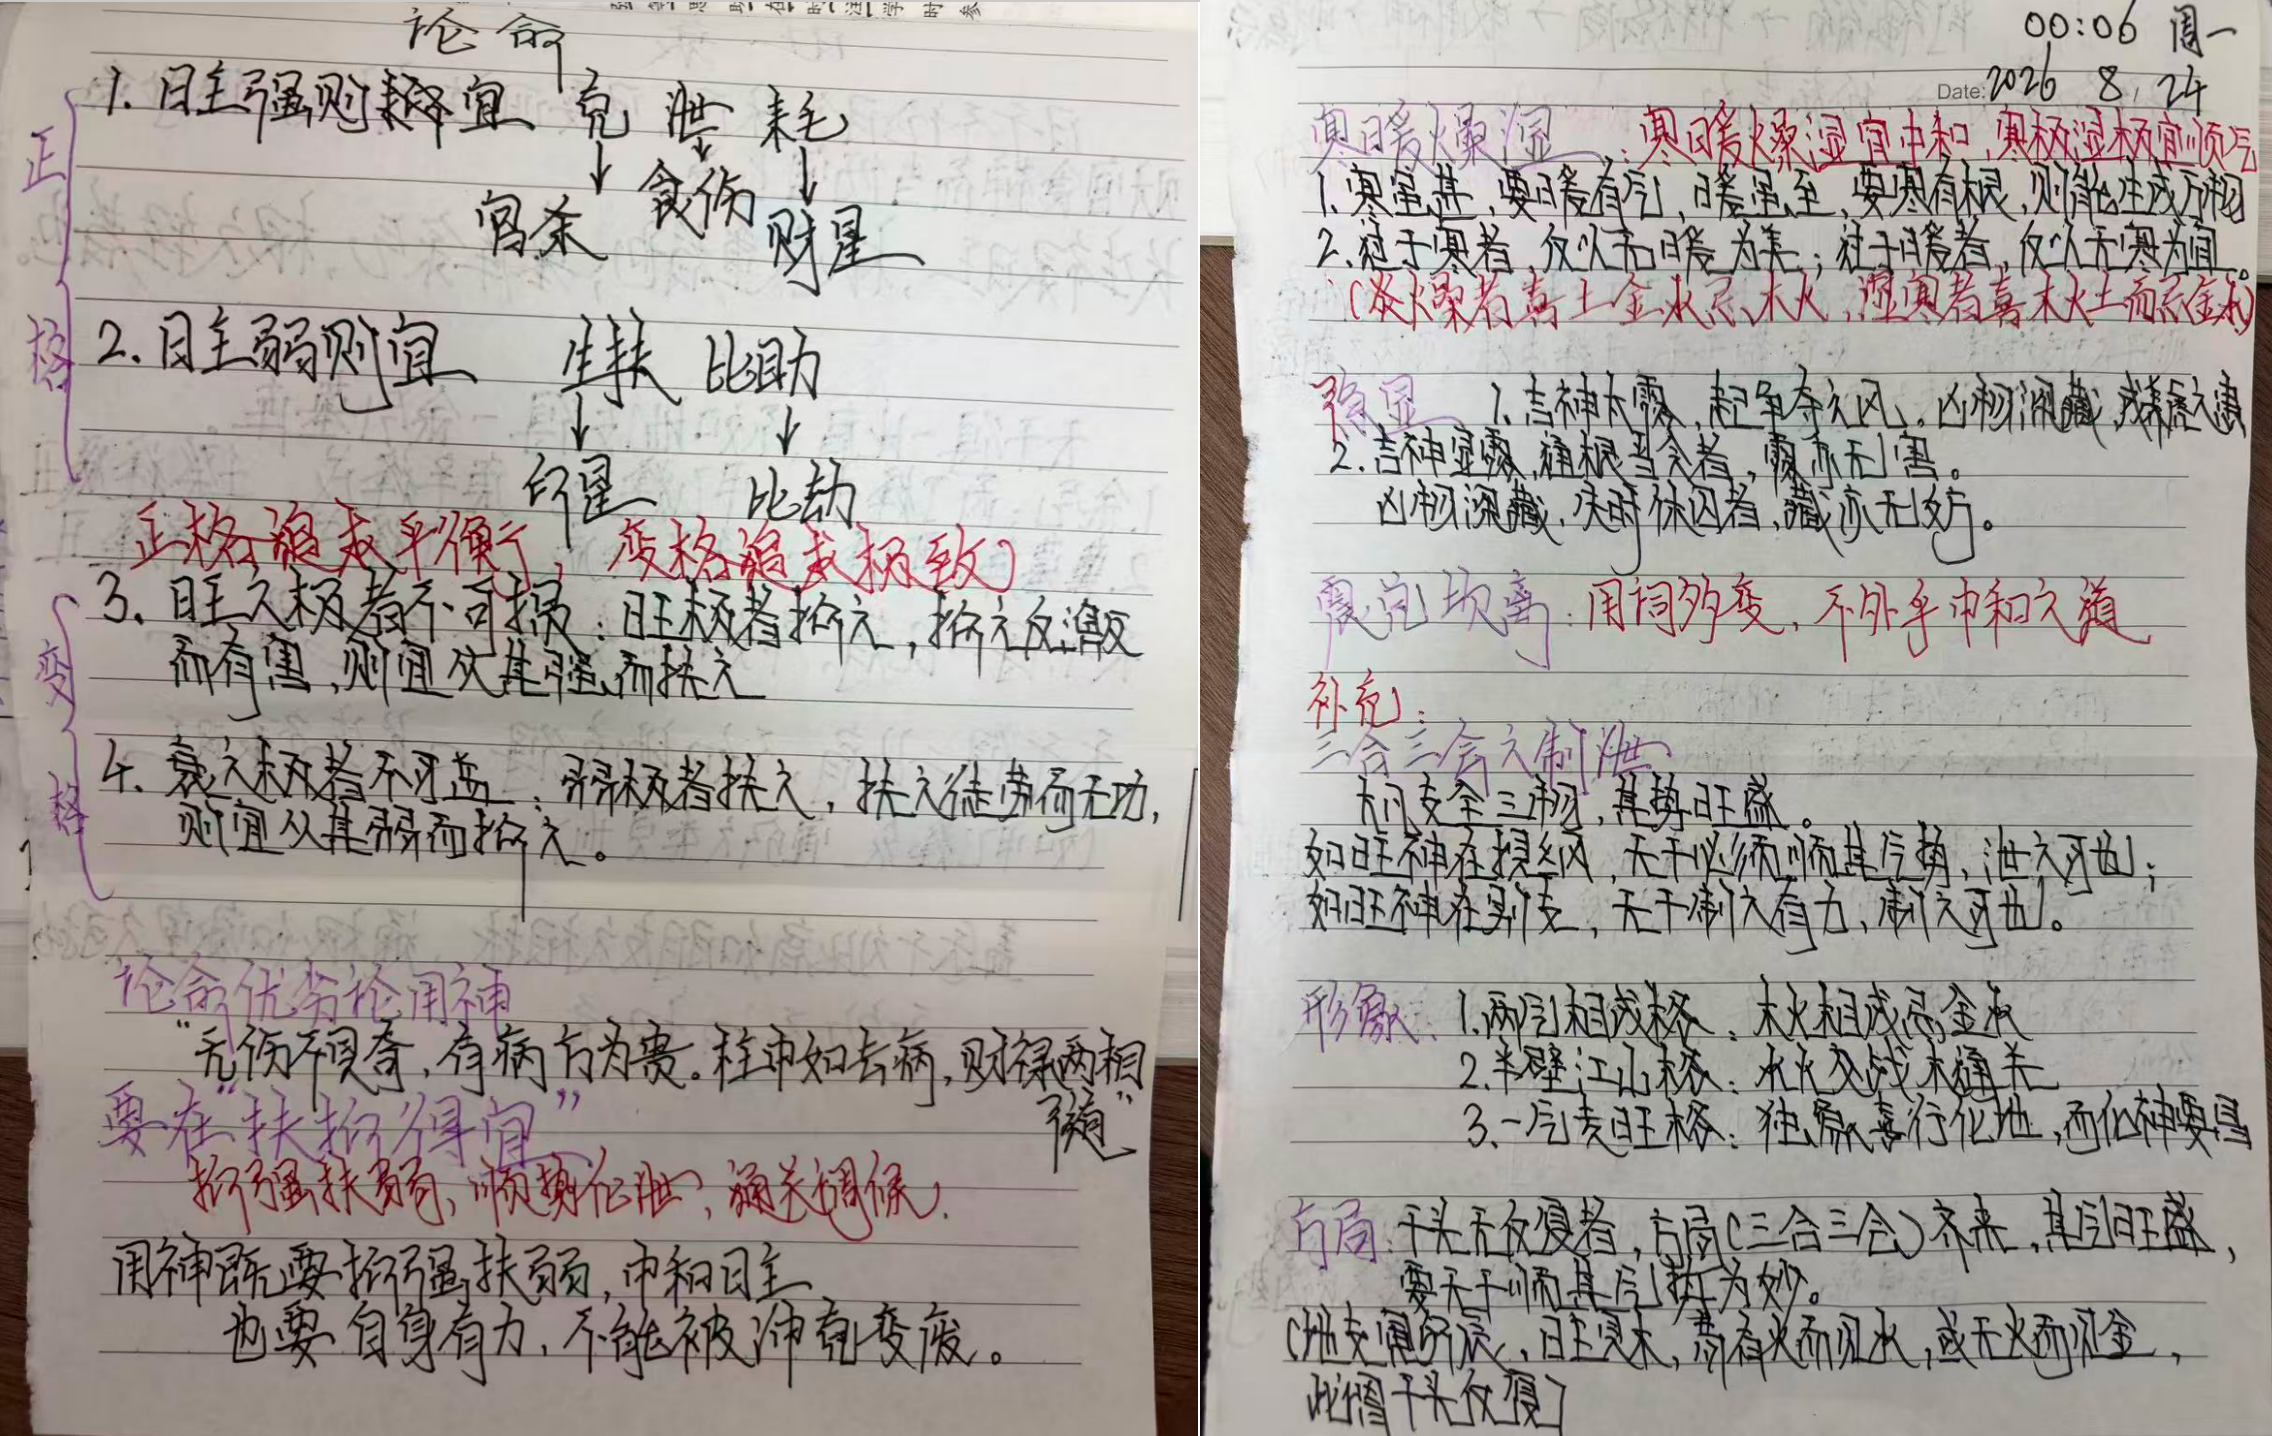 论命
1. 日主强则宜 克 泄 耗
官杀 食伤 财星
正格
2. 日主弱则宜 生扶 比助
印星 比劫
正格追求平衡，变格追求极致
3. 旺之极者不可损：旺极者抑之，抑之反激
而有害，则宜从其强而扶之
变格
4. 衰之极者不可益：弱极者扶之，扶之徒劳而无功，
则宜从其弱而抑之。
论命优劣论用神
“无伤不是奇，有病方为贵。柱中如去病，财禄两相
随”
要在“扶抑得宜”
抑强扶弱、顺势化泄、通关调候.
用神既要抑强扶弱，中和日主
也要自身有力，不能被冲克变废。
00:06 周一
Date: 2026 8, 24
寒暖燥湿：寒暖燥湿宜中和，寒极湿极宜顺气
1. 寒虽甚，要暖有气，暖虽至，要寒有根，则能生成万物
2. 过于寒者，反以无暖为美；过于暖者，反以无寒为宜。
(炎燥者喜土金水忌木火，湿寒者喜木火土而忌金水)
隐显 1. 吉神太露，起争夺之风。凶物深藏，成养虎之患
2. 吉神显露，通根当令者，露亦无害。
凶物深藏，失时休囚者，藏亦无妨。
震兑坎离：用词多变，不外乎中和之道
补充：
三合三会之制泄
大凡支全三物，其势旺盛。
如旺神在提纲，天干必须顺其气势，泄之可也；
如旺神在别支，天干制之有力，制之可也。
形象：1. 两气相成格：木火相成忌金水
2. 半壁江山格：水火交战木通关
3. 一气专旺格：独象喜行化地，而化神要昌
方局：干头无反侵者，方局(三合三会)齐来，其气旺盛，
要天干顺其气势为妙。
(地支寅卯辰、日主是木，喜有火而见水，或无火而见金，
此谓干头反侵)